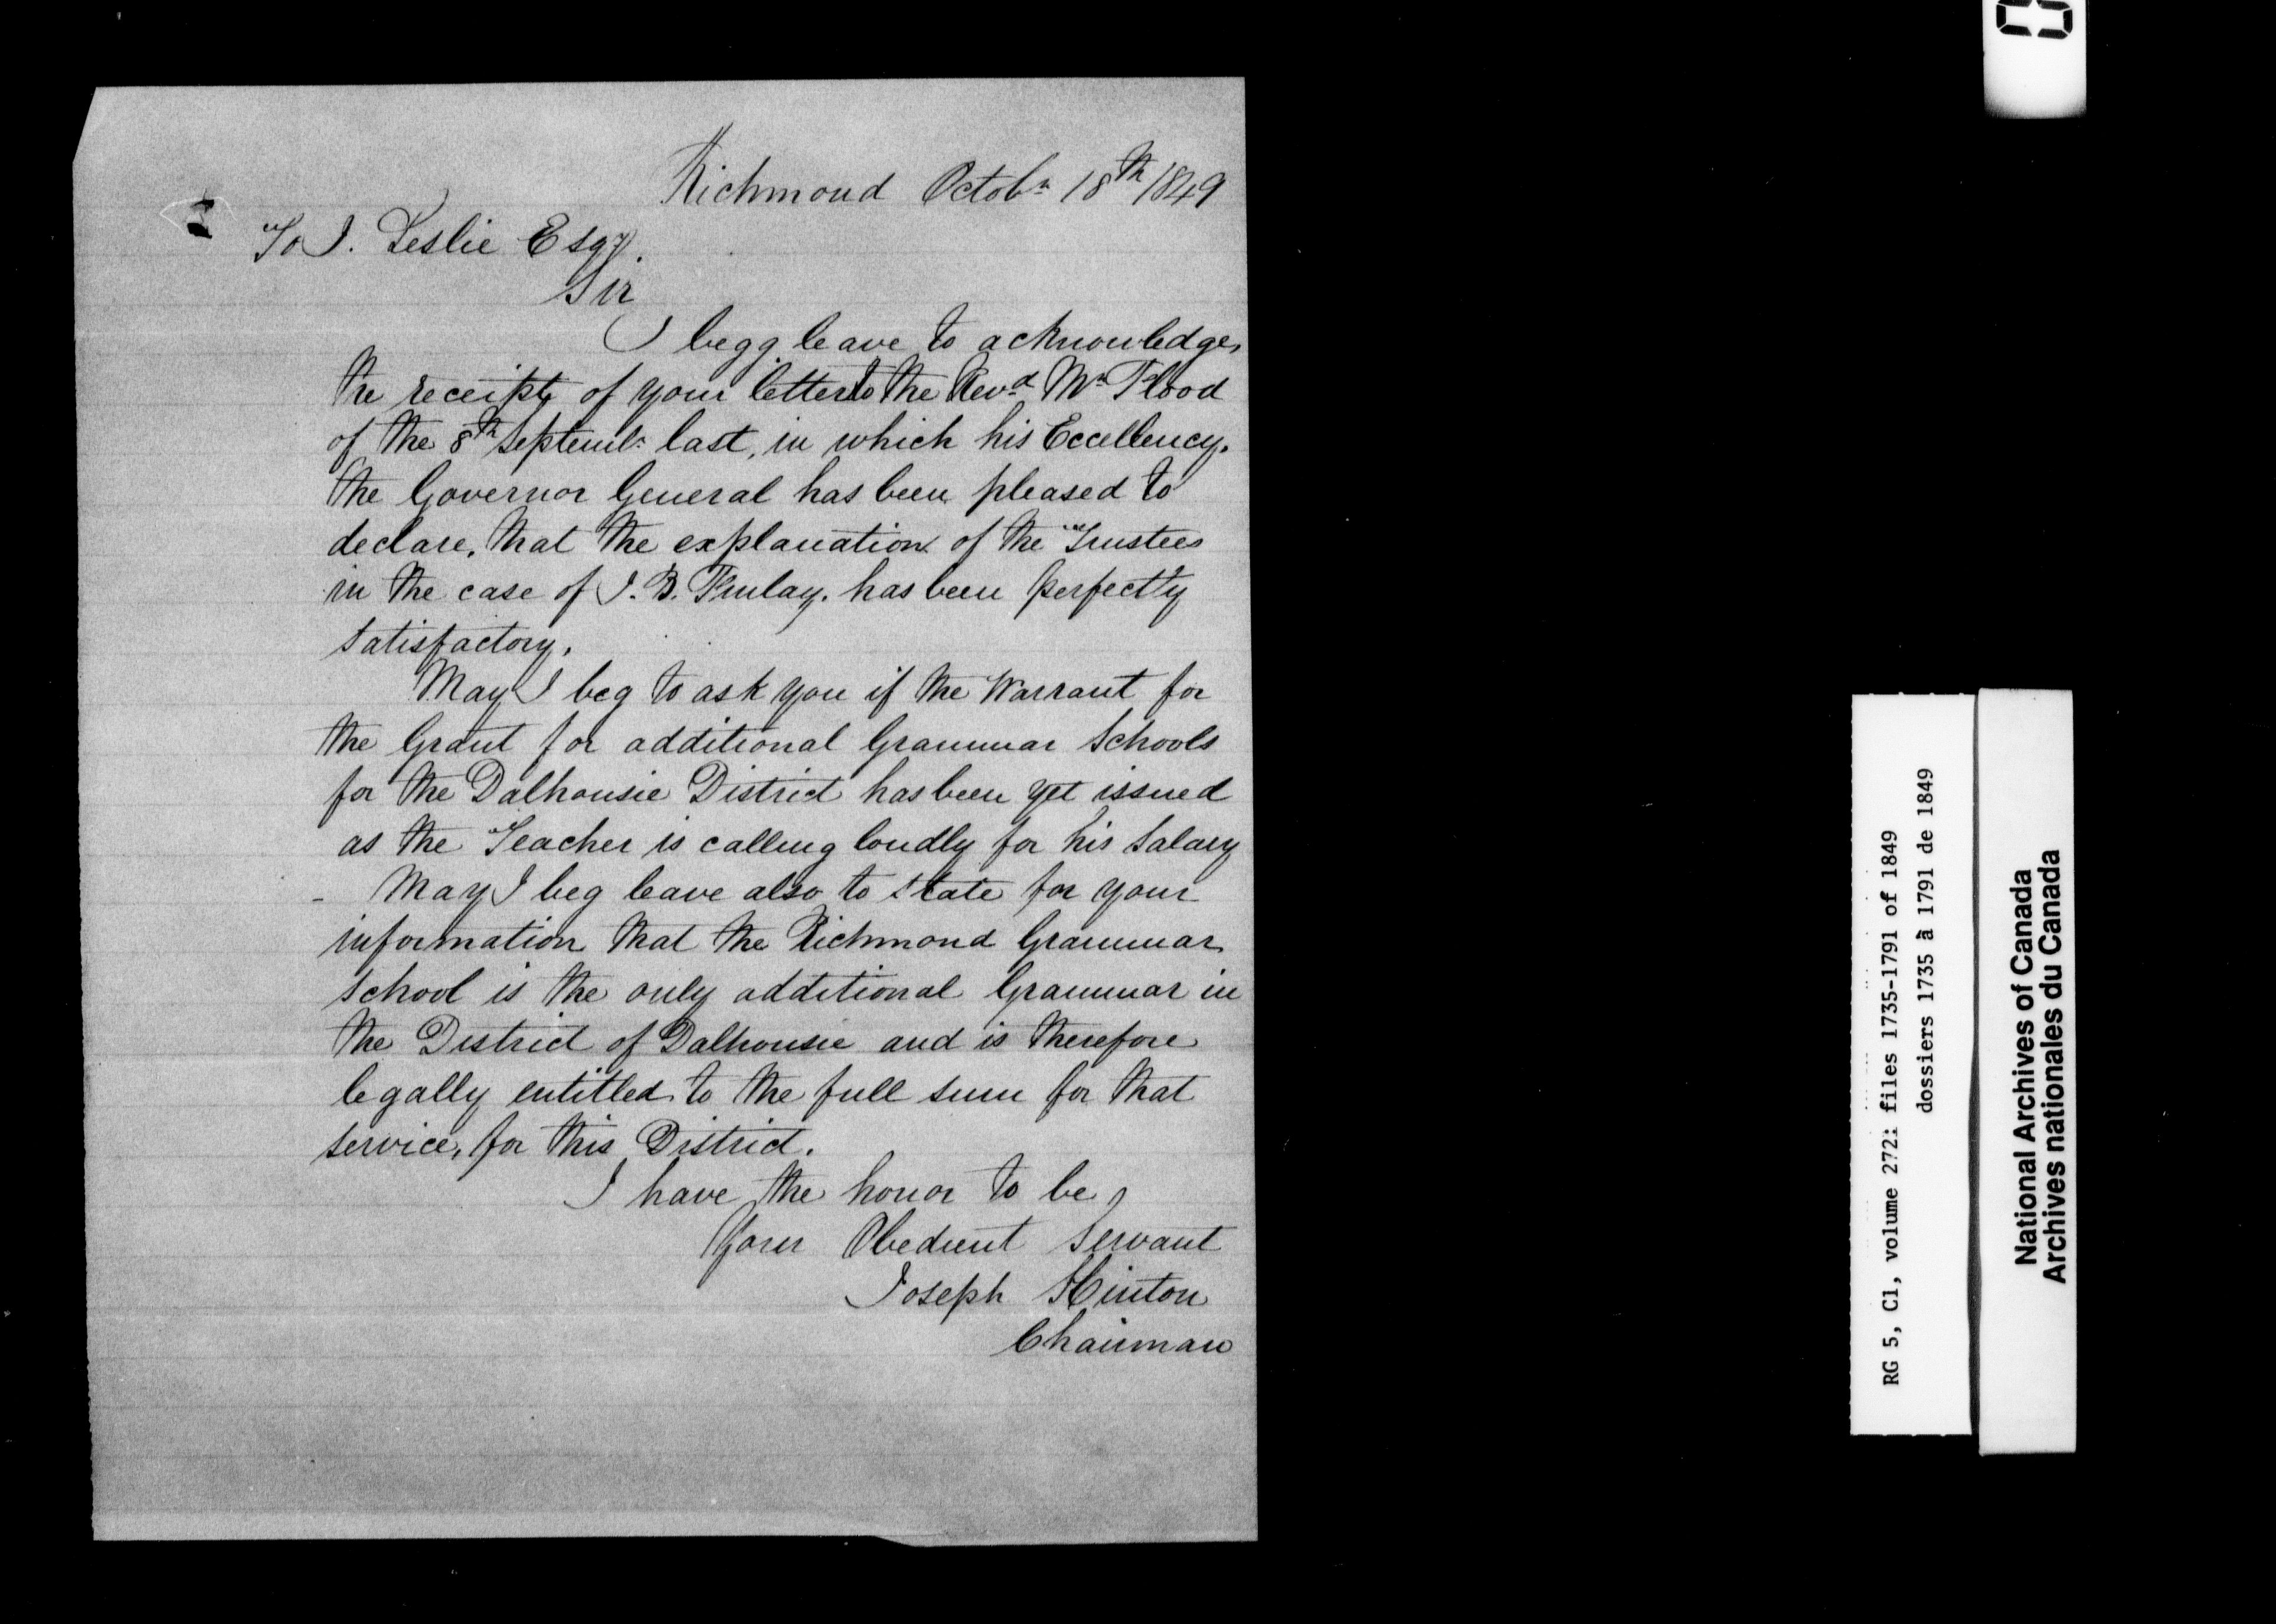 Richmond Octobr 18th 1849
To J. Leslie Esqr.
Sir
I begg leave to acknowledge
the receipt of your letter to the Revd Mr Flood
of the 8th Septembr last, in which his Eccellency.
the Governor General has been pleased to
declare, that the explanation of the Trustees
in the case of J. B. Finlay. has been perfectly
satisfactory.
May I beg to ask you if the Warrant for
the Grant for additional Grammar Schools
for the Dalhousie District has been yet issued
as the Teacher is calling loudly for his Salary
- May I beg leave also to state for your
information that the Richmond Grammar
School is the only additional Grammar in
the District of Dalhousie and is therefore
legally entitled to the full sum for that
service, for this District.
I have the honor to be,
Your Obedient Servant
Joseph Hinton
Chairman
RG 5, C1, volume 272: files 1735-1791 of 1849
dossiers 1735 à 1791 de 1849
National Archives of Canada
Archives nationales du Canada